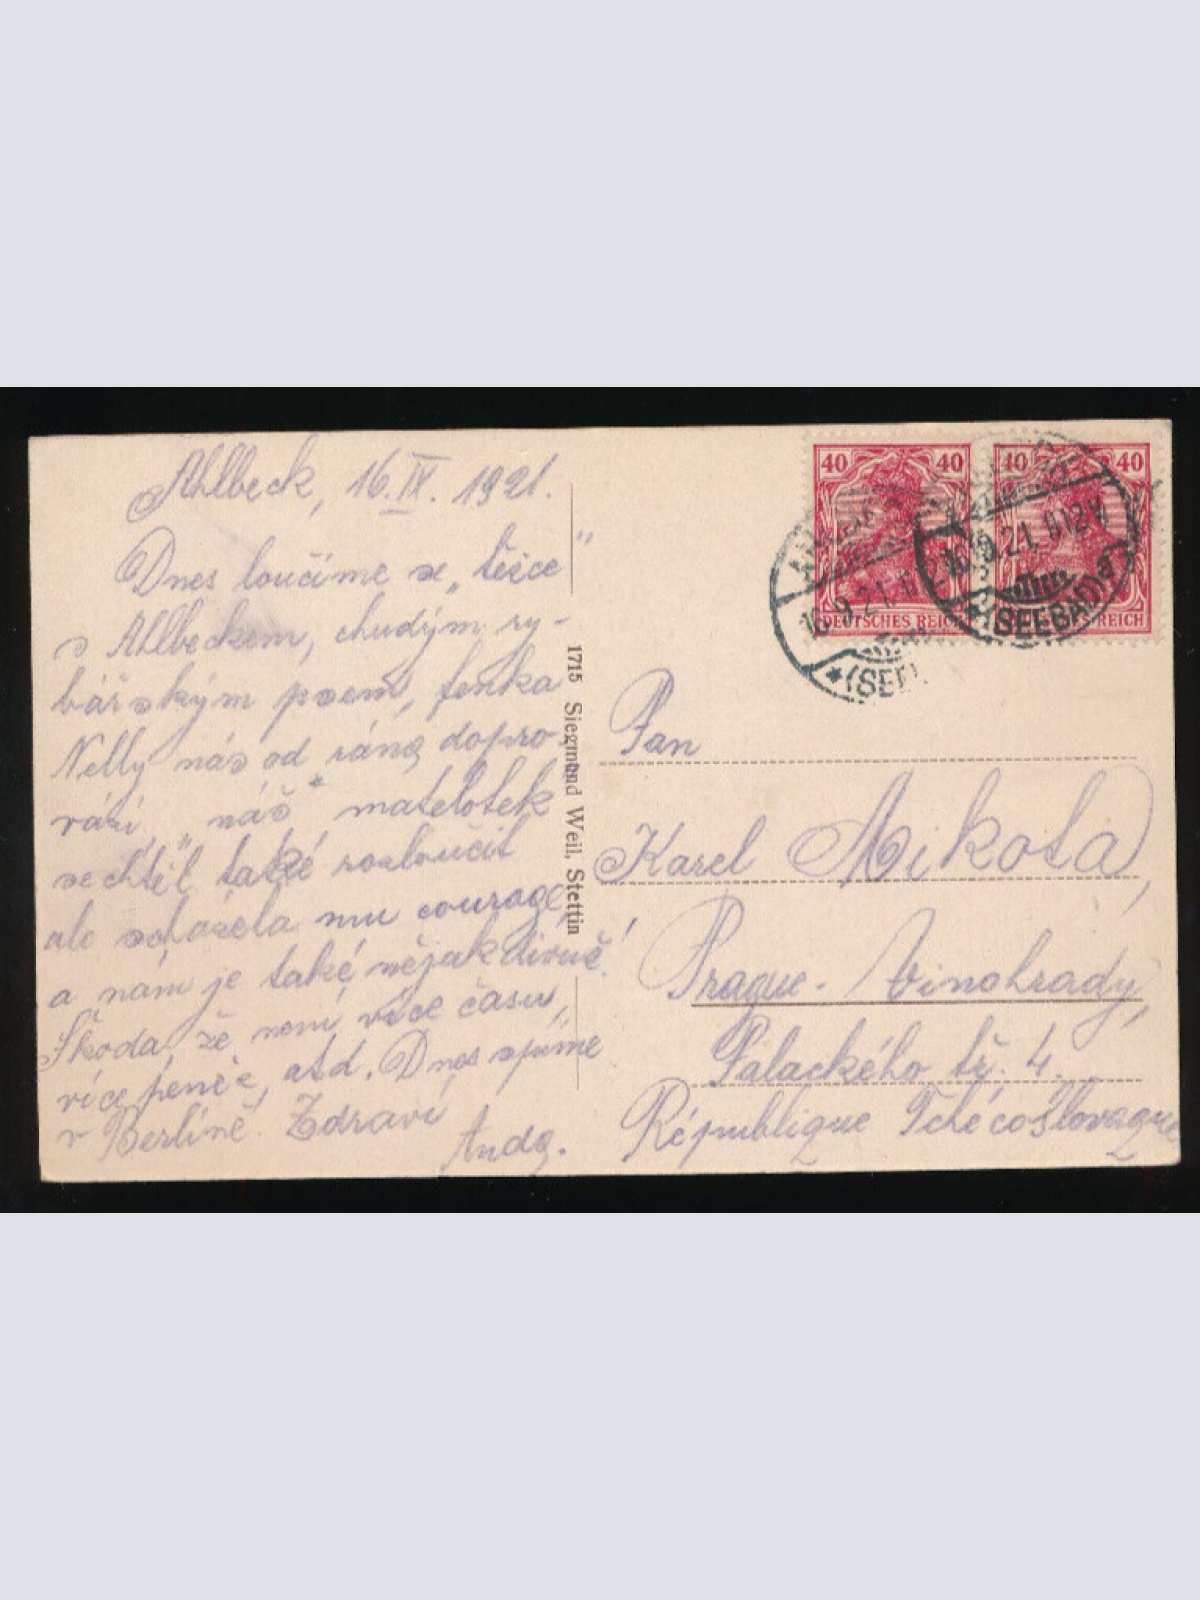 Ahlbeck, 16.IX. 1921.
Dnes loučíme se „těžce"
s Ahlbeckem, chudým ry-
bářským psem, fenka
Nelly nás od rána dopro-
vází, „náš" matelotek
se chtěl také rozloučit
ale scházela mu courage,
a nám je také nějak divně!
Škoda že není více času,
více peněz, atd. Dnes spíme
v Berlíně. Zdraví
Anda.
1715 Siegmund Weil, Stettin
40 40
40 40
DEUTSCHES REICH
REICH
16.9.21.
16.9.21.
(SEEBAD)
a
Pan
Karel Mikota,
Prague - Vinohrady,
Palackého tř. 4.
République Tchécoslovaque